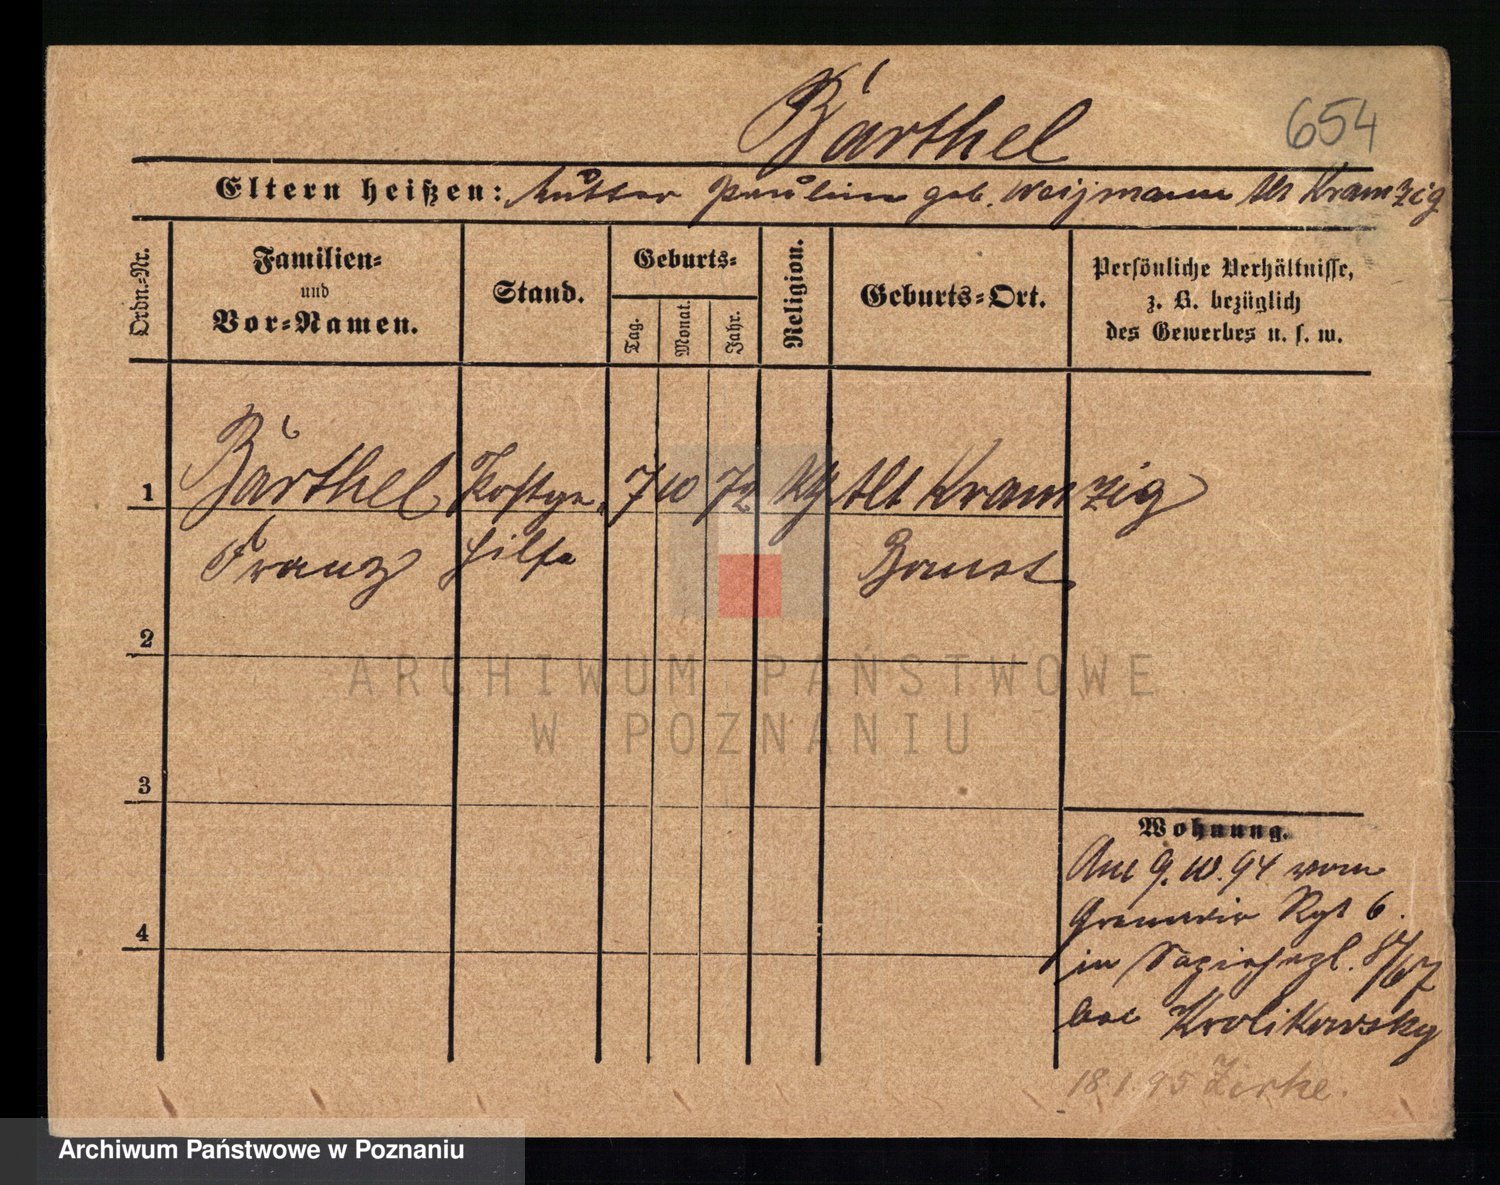 Barthel
654
Eltern heißen: Mutter Paulin geb. Weijmann Alt Kramzig
Ordn.-Nr.
Familien-
und
Vor-Namen.
Stand.
Geburts-
Tag.
Monat.
Jahr.
Religion.
Geburts-Ort.
Persönliche Verhältnisse,
z. B. bezüglich
des Gewerbes u. s. w.
1 Barthel Postge- 7 10 72 Alt Kramzig
Franz hilfe Bomst
2
3
4
Wohnung.
Am 9.10.94 vom
Grenadir Rgt 6.
in Sapiehapl.
bei Krolikowsky
18.1.95 Zirke.
ARCHIWUM PAŃSTWOWE
W POZNANIU
Archiwum Państwowe w Poznaniu